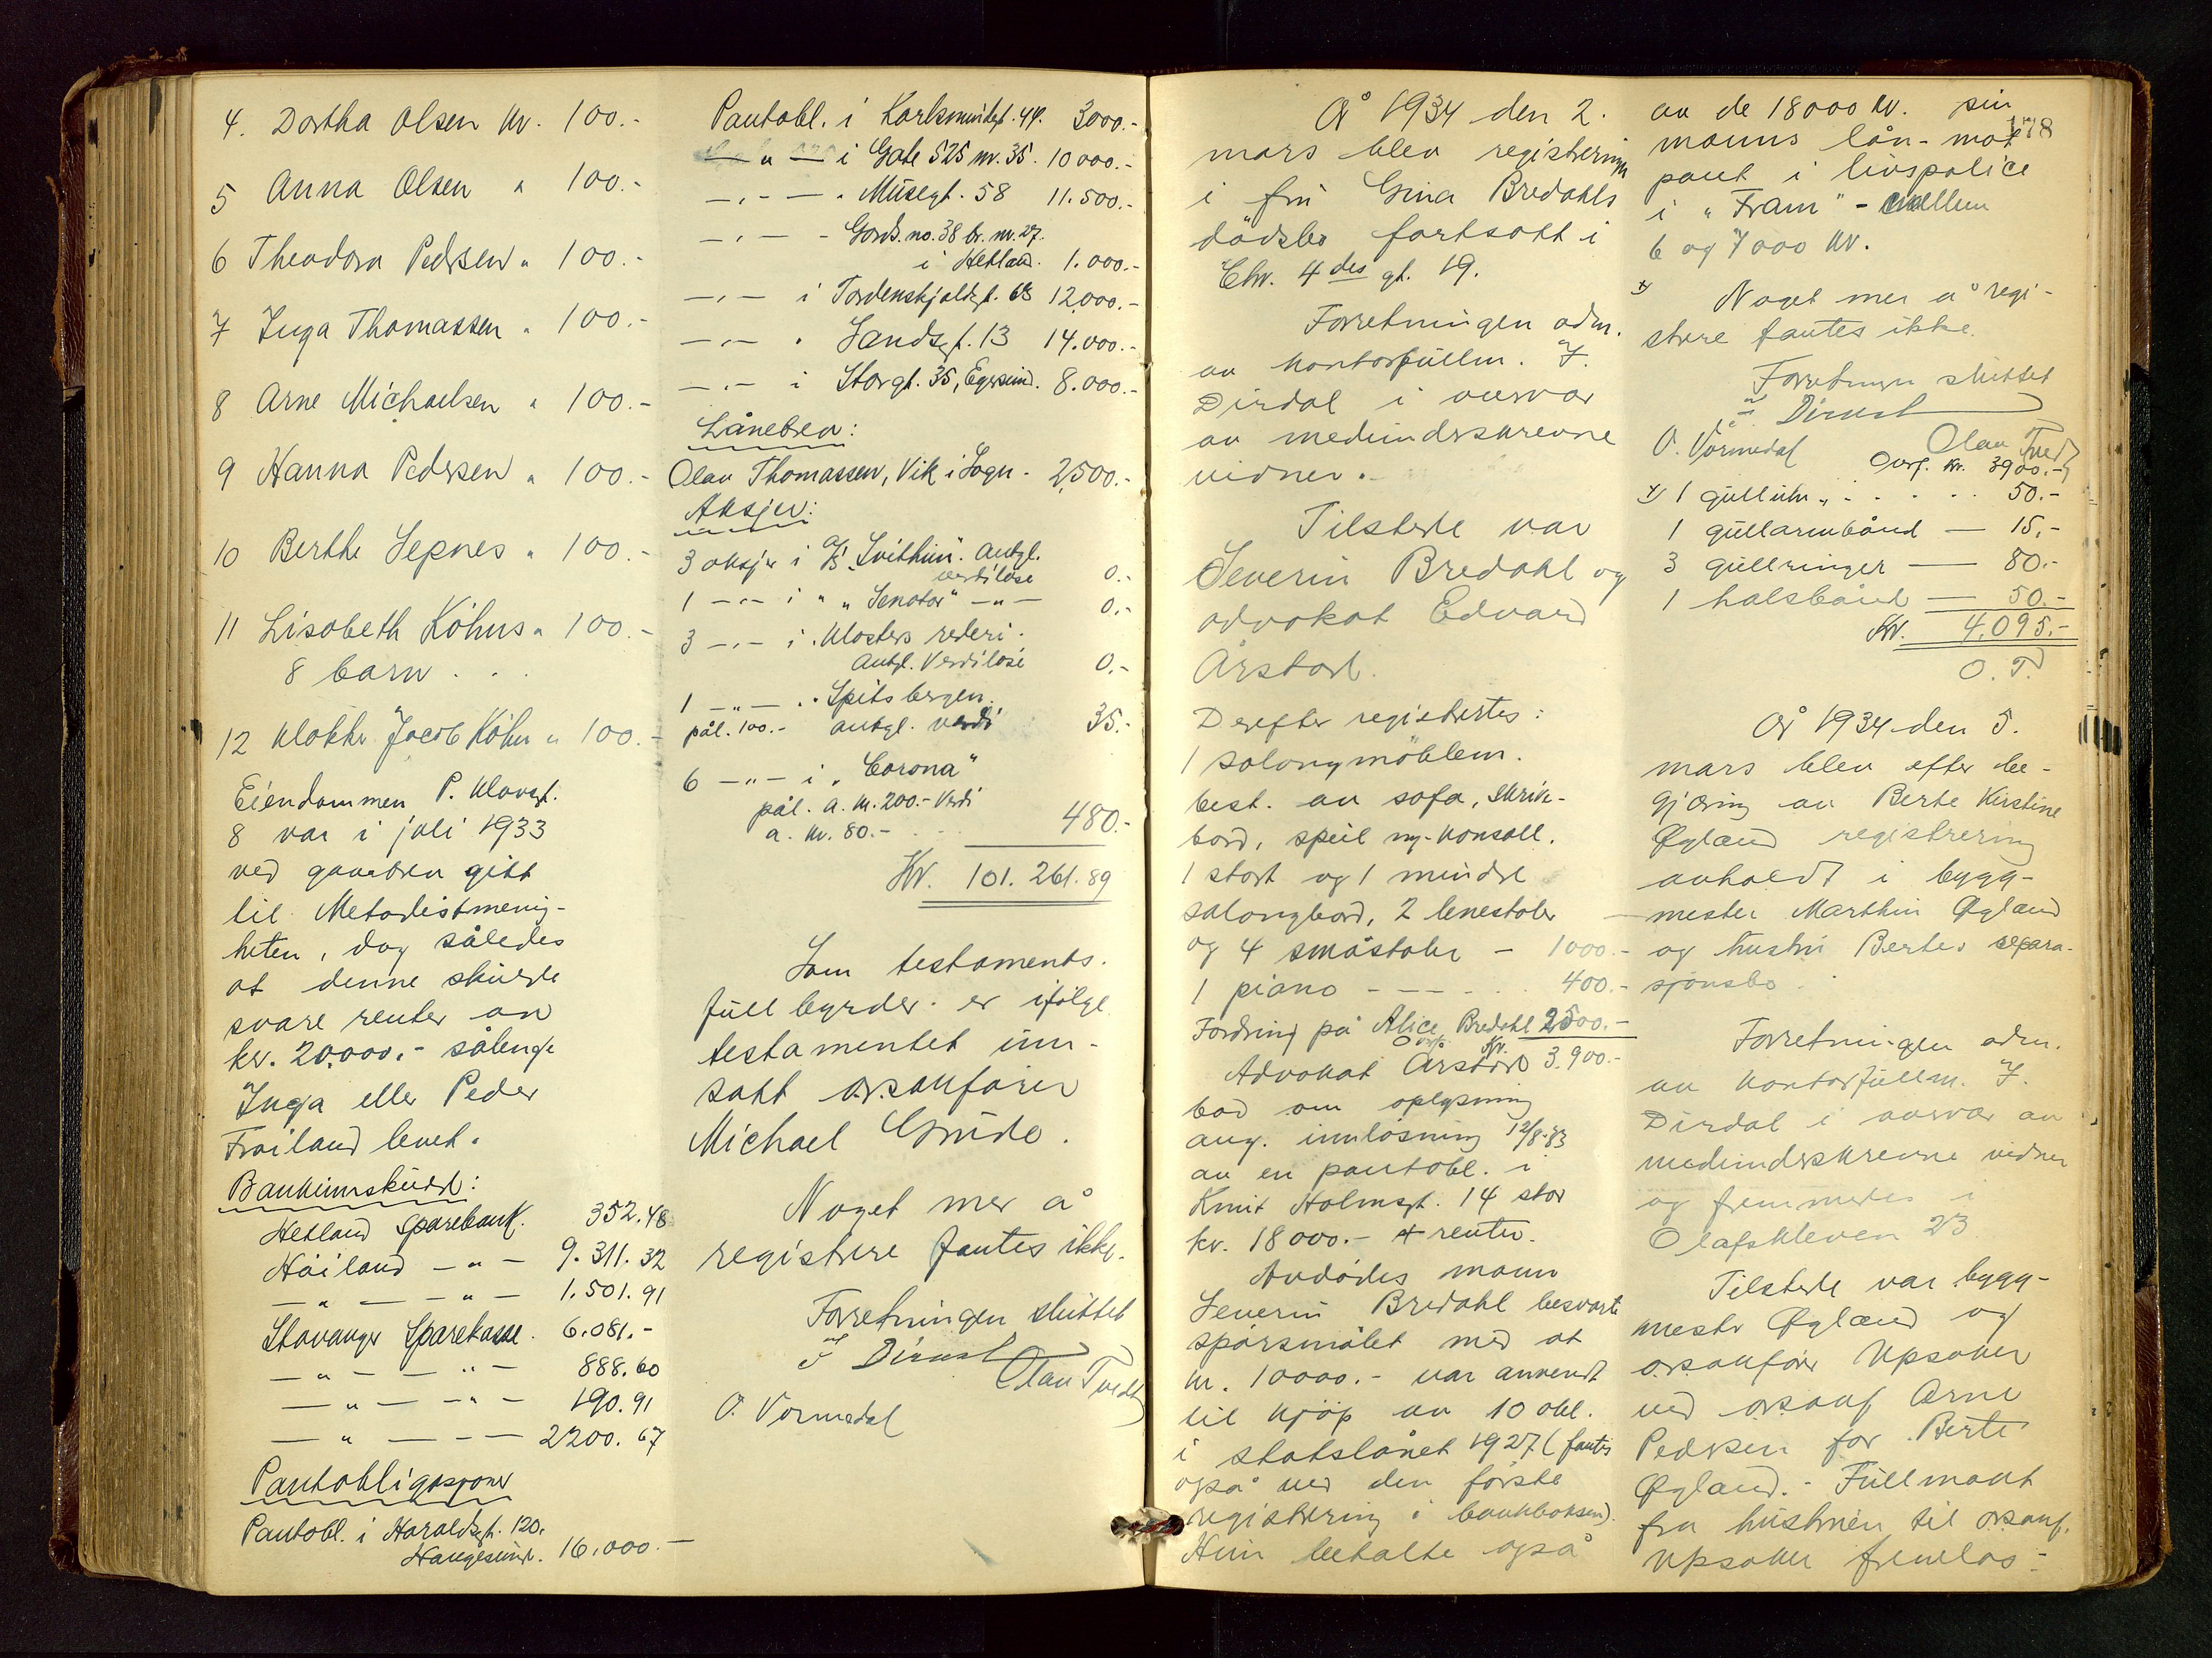 4. Dortha Olsen kr. 100.-
5 Anna Olsen " 100.-
6 Theodora Pedersen " 100.-
7 Inga Thomassen " 100.-
8 Arne Michaelsen " 100.-
9 Hanna Pedersen " 100.-
10 Berthe Sepnes " 100.-
11 Lisabeth Köhns " 100.-
8 barn . . .
12 Klokker Jacob Köhn " 100.-
Eiendommen P. Klowsgt.
8 var i juli 1933
ved gavebrev gitt
til Metodistmenig-
heten, dog således
at denne skulde
svare renter av
kr. 20.000.- sålenge
Inga eller Peder
Frøiland levet.
Bankinnskudd:
Hetland Sparebank. 352.48
Håiland - " - 9.311.32
- " - - " - 1.501.91
Stavanger Sparekasse. 6.081.-
- " - - " - 888.60
- " - - " - 190.91
- " - - - 2200.67
Pantobligasjoner
Pantobl. i Haraldsgt. 120.
Haugesund. 16.000.-
Pantobl. i Karlsmindegt. 44. 3000.-
" i Gate 525 nr. 35. 10000.-
- " - " Musegt. 58 11.500.-
- " - - Gards. no. 38 br. nr. 27.
i Hetland. 1.000.-
- " - i Tordenskjoldsgt. 68 12,000.-
- " - " Sandsgt. 13 14.000.-
- " - i Storgt. 35, Egersund. 8.000.-
Lånebrev:
Olav Thomassen, Vik i Sogn - 2,500.-
Aksjer:
3 aksjer i A/S "Svithun". Antgl.
verdiløse 0.-
1 - " - i " "Senator" - " - 0.-
3 - " - i Klosters rederi.
Antgl. Verdiløse 0.-
1 - " - . Spitsbergen.
pål. 100.- antgl. verdi 35.-
6 - " - i "Corona"
pål. a. kr. 200.- Verdi
a. kr. 80.- . . 480.-
Kr. 101.261.89
Som testaments-
fullbyrder er ifølge
testamentet inn-
satt o.r.sakfører
Michael Grude.
Noget mer å
registrere fantes ikke.
Forretningen sluttet
J Dirdal
Olav Tvedt
O. Vormedal
178
År 1934 den 2.
mars blev registrering
i fru Gina Bredahls
dødsbo fortsatt i
Chr. 4des gt. 19.
Forretningen adm.
av kontorfullm. J.
Dirdal i nærvær
av medundskrevne
vidner.
Tilstede var
Severin Bredahl og
advokat Edvard
Årstad.
Derefter registrertes:
1 salongmöblem.
best. av sofa, skrive-
bord, speil m/konsoll.
1 stort og 1 mindre
salongbord, 2 lenestoler
og 4 småstoler - 1000.-
1 piano - - - . . 400.-
Fordring på Alice Bredahl 2500.-
Overf. Kr. 3.900.-
Advokat Årstad
bad om oplysning
ang. innløsning 12/8-33
av en pantobl. i
Knut Holmsgt. 14 stor
kr. 18000.- + renter.
Avdødes mann
Severin Bredahl besvarte
spørsmålet med at
kr. 10000.- var anvendt
til kjøp av 10 obl.
i statslånet 1927 (fantes
også ved den første
registrering i bankboksen).
Hun betalte også
av de 18000 kr. sin
manns lån - mot
pant i livspolice
i "Fram" - mellem
6 og 7000 kr.
x) Noget mer å regi-
strere fantes ikke.
Forretningen sluttet
J Dirdal
O. Vormedal Olav Tvedt
Overf. kr. 3900.-
x) 1 gullur " . . . . 50.-
1 gullarmbånd — 15.-
3 gullringer — 80.-
1 halsbånd — 50.-
Kr. 4.095.-
O. T.
År 1934 den 5.
mars blev efter be-
gjæring av Berte Kirstine
Øgland registrering
avholdt i bygg-
mester Marthin Øgland
og hustru Bertes separa-
sjonsbo.
Forretningen adm.
av kontorfullm. J.
Dirdal i nærvær av
medundskrevne vidner
og fremmedes i
Olafskleven 23
Tilstede var bygg-
mester Øgland og
o.r.sakfører Upsaker
ved o.r.sakf Arne
Pedersen for Berte
Øgland. - Fullmakt
fra hustruen til o.r.sakf.
Upsaker fremlas-